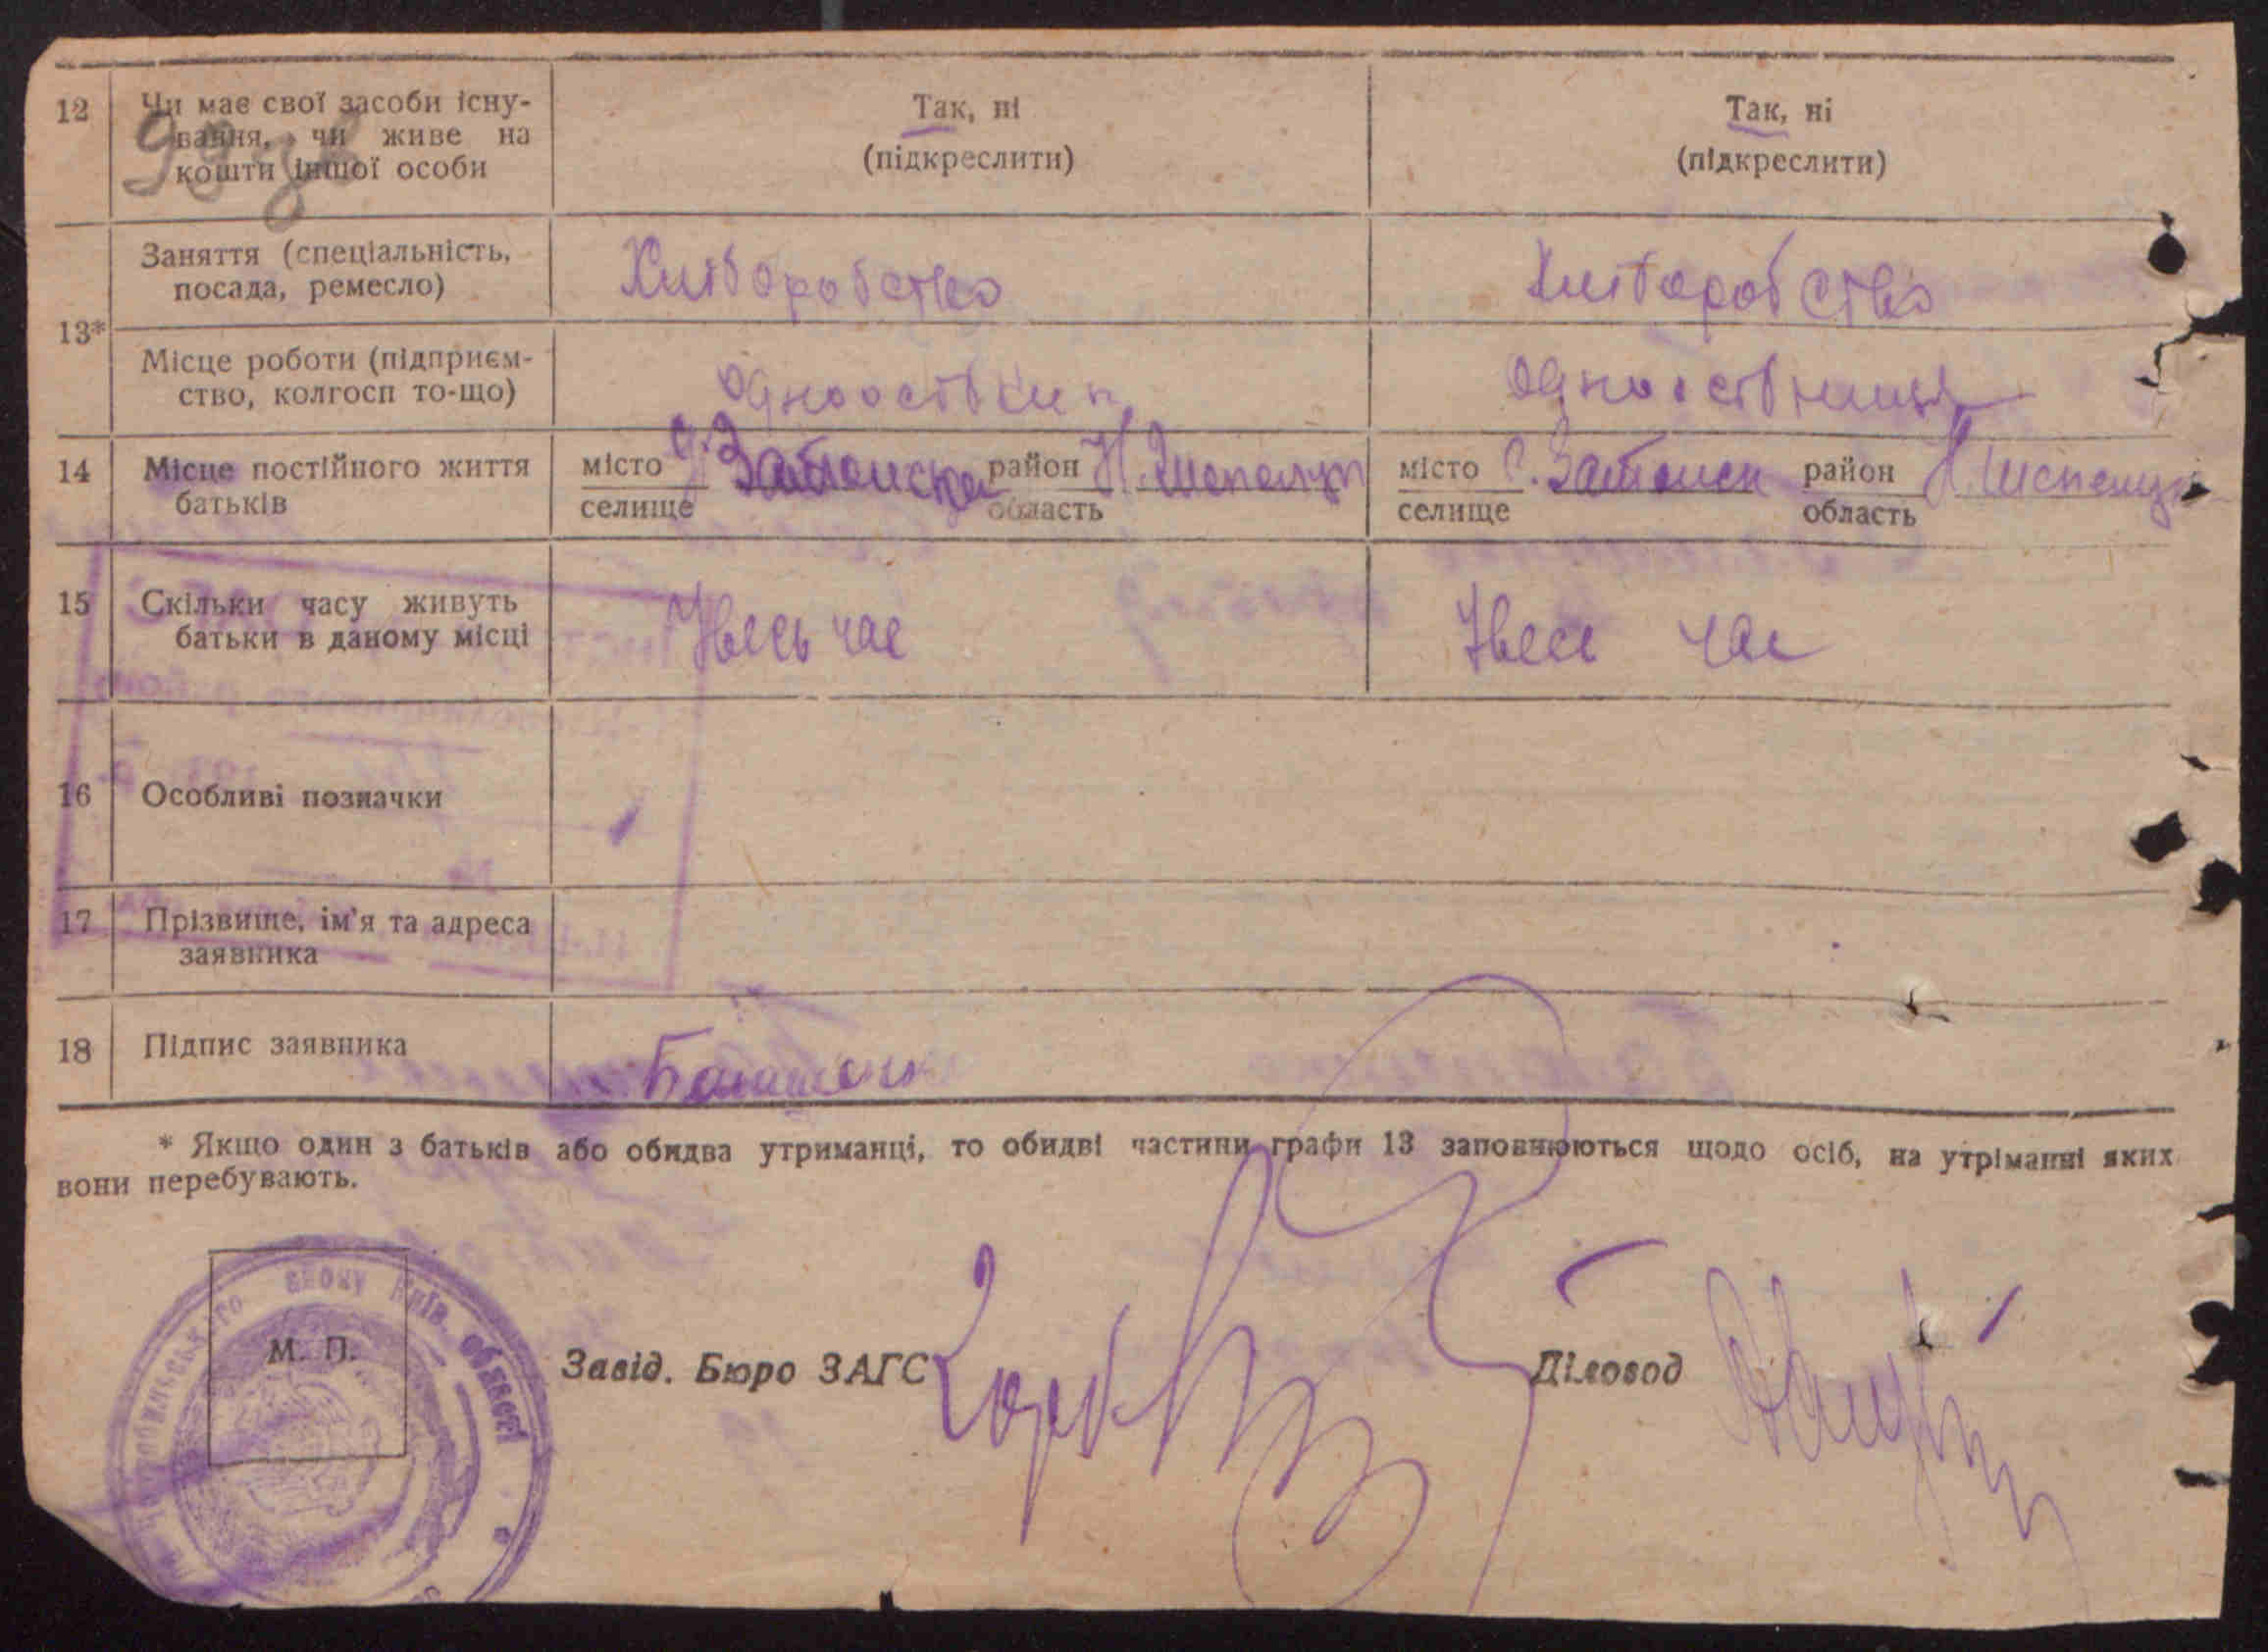 12
Чи має свої засоби існу-
вання, чи живе на
кошти іншої особи
Так, ні
(підкреслити)
Так, ні
(підкреслити)
13*
Заняття (спеціальність,
посада, ремесло)
Хліборобство
Хліборобство
Місце роботи (підприєм-
ство, колгосп то-що)
14
Місце постійного життя
батьків
місто
селище
район Н. Шепелич
область
місто
селище
район Н. Шепелич
область
15
Скільки часу живуть
батьки в даному місці
Увесь час
Увесь час
16
Особливі позначки
17
Прізвище, ім'я та адреса
заявника
18
Підпис заявника
* Якщо один з батьків або обидва утриманці, то обидві частини графи 13 заповнюються щодо осіб, на утріманні яких
вони перебувають.
М. П.
Київ. області
Завід. Бюро ЗАГС
Діловод